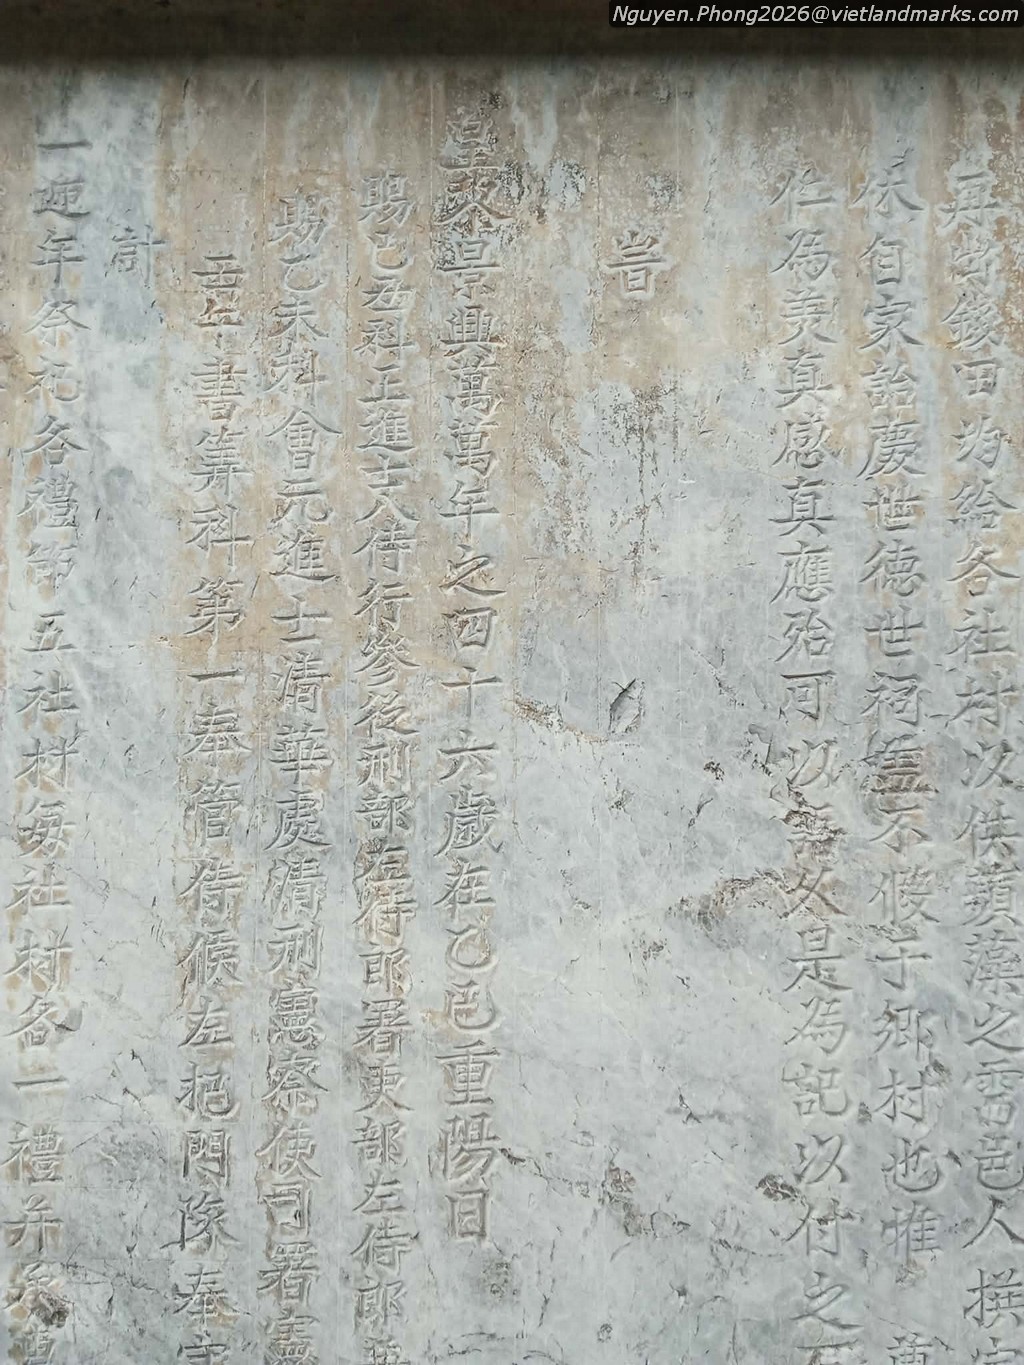 Nguyen.Phong2026@vietlandmarks.com
再當錢田均給各社村以供蘋藻之需邑人撰
休自家詒慶世德世祠盖不假于鄉村也惟
仁為美真感真應殆可以不久是為記以付之
旹
皇黎景興萬萬年之四十六歲在乙巳重陽日
賜己丑科正進士入侍行參從刑部右侍郎署吏部左侍郎
助乙未科會元進士清華處清刑憲察使司署憲
壬午書筭科第一奉管侍候左把門隊奉
計
一迎年祭祀各禮節五社村每社村各一禮并